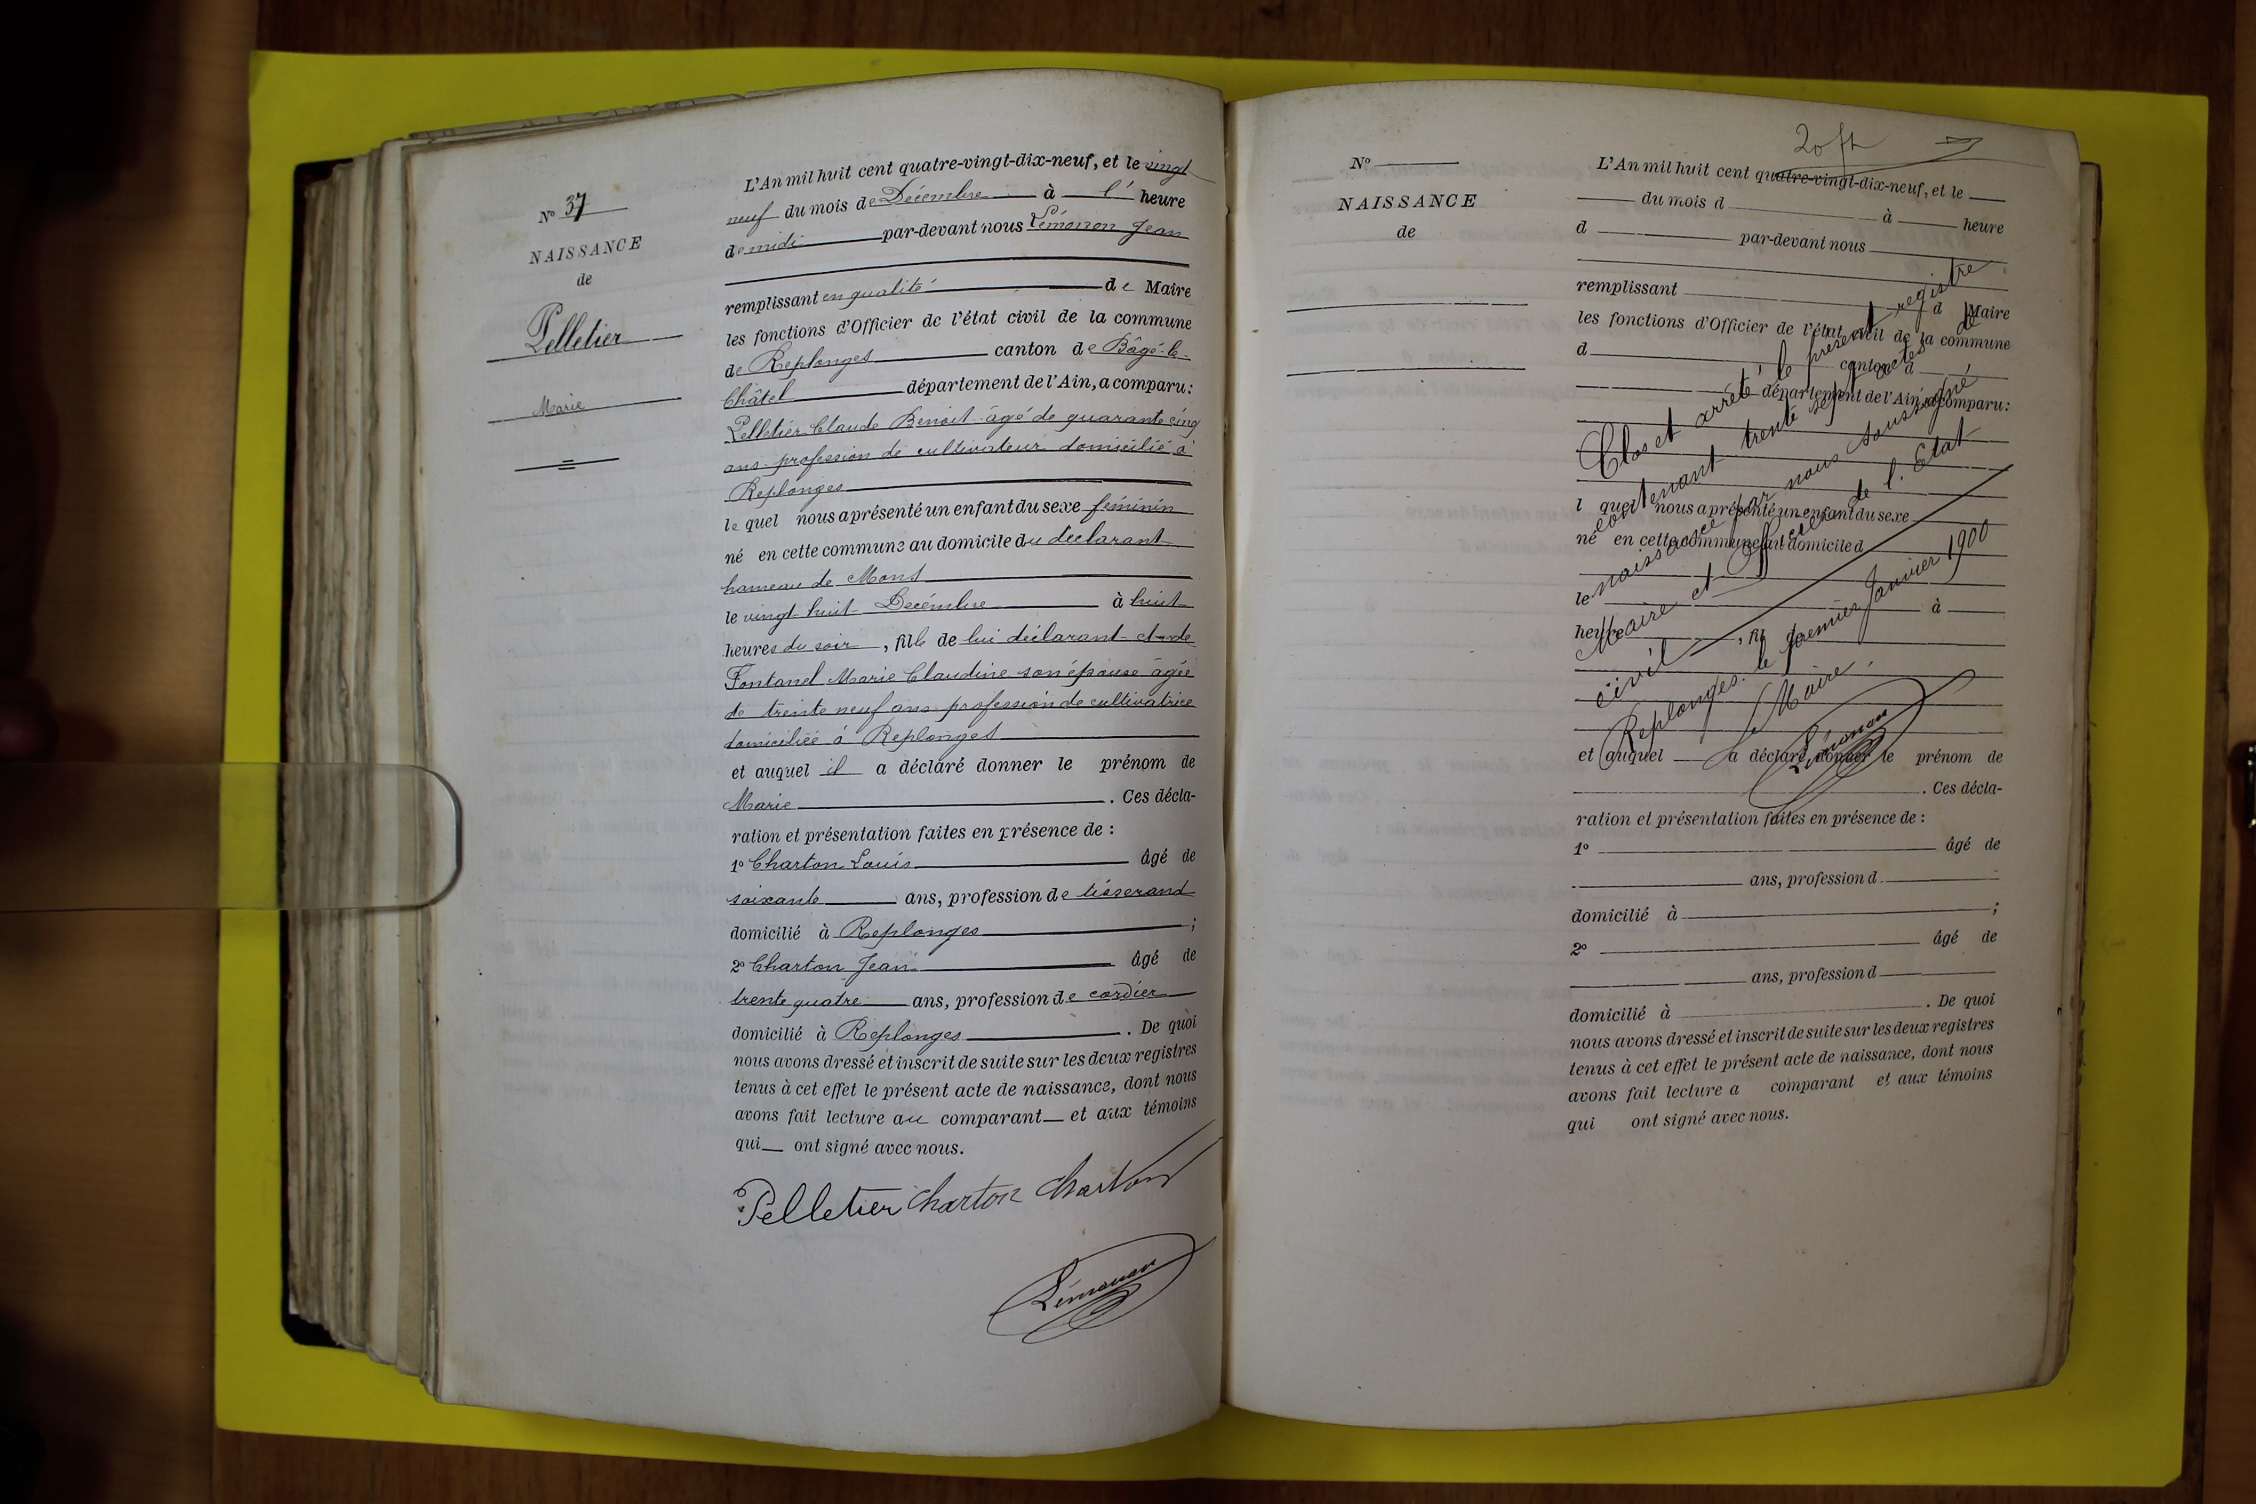 N° 37
NAISSANCE
de
Pelletier
Marie
L'An mil huit cent quatre-vingt-dix-neuf, et le vingt
neuf du mois de Décembre à l' heure
de midi par-devant nous Lémonon Jean
remplissant en qualité de Maire
les fonctions d'Officier de l'état civil de la commune
de Replonges canton de Bâgé-le-
Châtel département de l'Ain, a comparu:
Pelletier Claude Benoit âgé de quarante cinq
ans profession de cultivateur domicilié à
Replonges
le quel nous a présenté un enfant du sexe féminin
né en cette commune au domicile du déclarant
hameau de Mons
le vingt huit Decémbre à huit
heures du soir, fille de lui déclarant et de
Fontanel Marie Claudine son épouse âgée
de trente neuf ans profession de cultivatrice
domiciliée à Replonges
et auquel il a déclaré donner le prénom de
Marie. Ces décla-
ration et présentation faites en présence de :
1° Charton Louis âgé de
soixante ans, profession de tisserand
domicilié à Replonges ;
2° Charton Jean âgé de
trente quatre ans, profession de cordier
domicilié à Replonges. De quoi
nous avons dressé et inscrit de suite sur les deux registres
tenus à cet effet le présent acte de naissance, dont nous
avons fait lecture au comparant et aux témoins
qui ont signé avec nous.
Pelletier Charton Charton
Lémonon
N°
NAISSANCE
de
L'An mil huit cent quatre-vingt-dix-neuf, et le
du mois d à heure
d par-devant nous
remplissant d Maire
les fonctions d'Officier de l'état civil de la commune
d canton d
département de l'Ain, a comparu:
l quel nous a présenté un enfant du sexe
né en cette commune au domicile d
le à
heure , fil de
et auquel a déclaré donner le prénom de
. Ces décla-
ration et présentation faites en présence de :
1° âgé de
ans, profession d
domicilié à ;
2° âgé de
ans, profession d
domicilié à . De quoi
nous avons dressé et inscrit de suite sur les deux registres
tenus à cet effet le présent acte de naissance, dont nous
avons fait lecture a comparant et aux témoins
qui ont signé avec nous.
Clos et arrêté le présent registre
contenant trente sept actes de
naissance par nous soussigné
Maire et Officier de l'Etat
civil
Replonges le premier Janvier 1900
Le Maire
Lémonon